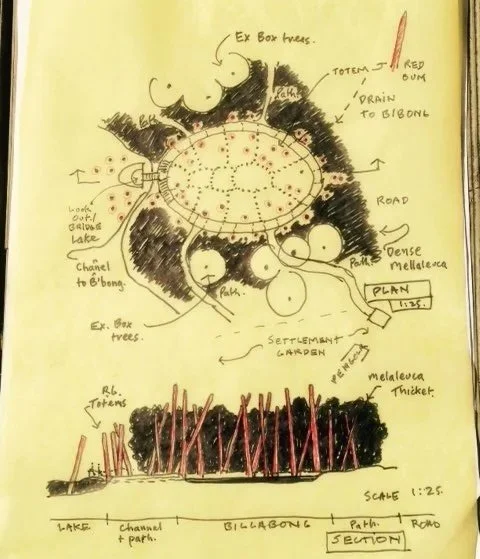 Ex Box trees.
TOTEM
RED
GUM
Path.
DRAIN
TO B/BONG
Path
Look
OUT/
BRIDGE
Lake
ROAD
Channel
to B'bong.
Dense
Mellaleuca
Path.
Path.
PLAN
1:25.
Ex. Box
trees.
SETTLEMENT
GARDEN
PERGOLA
R.G.
Totems
melaleuca
Thicket.
SCALE 1:25.
LAKE
Channel
+ path.
BILLABONG
Path.
ROAD
SECTION